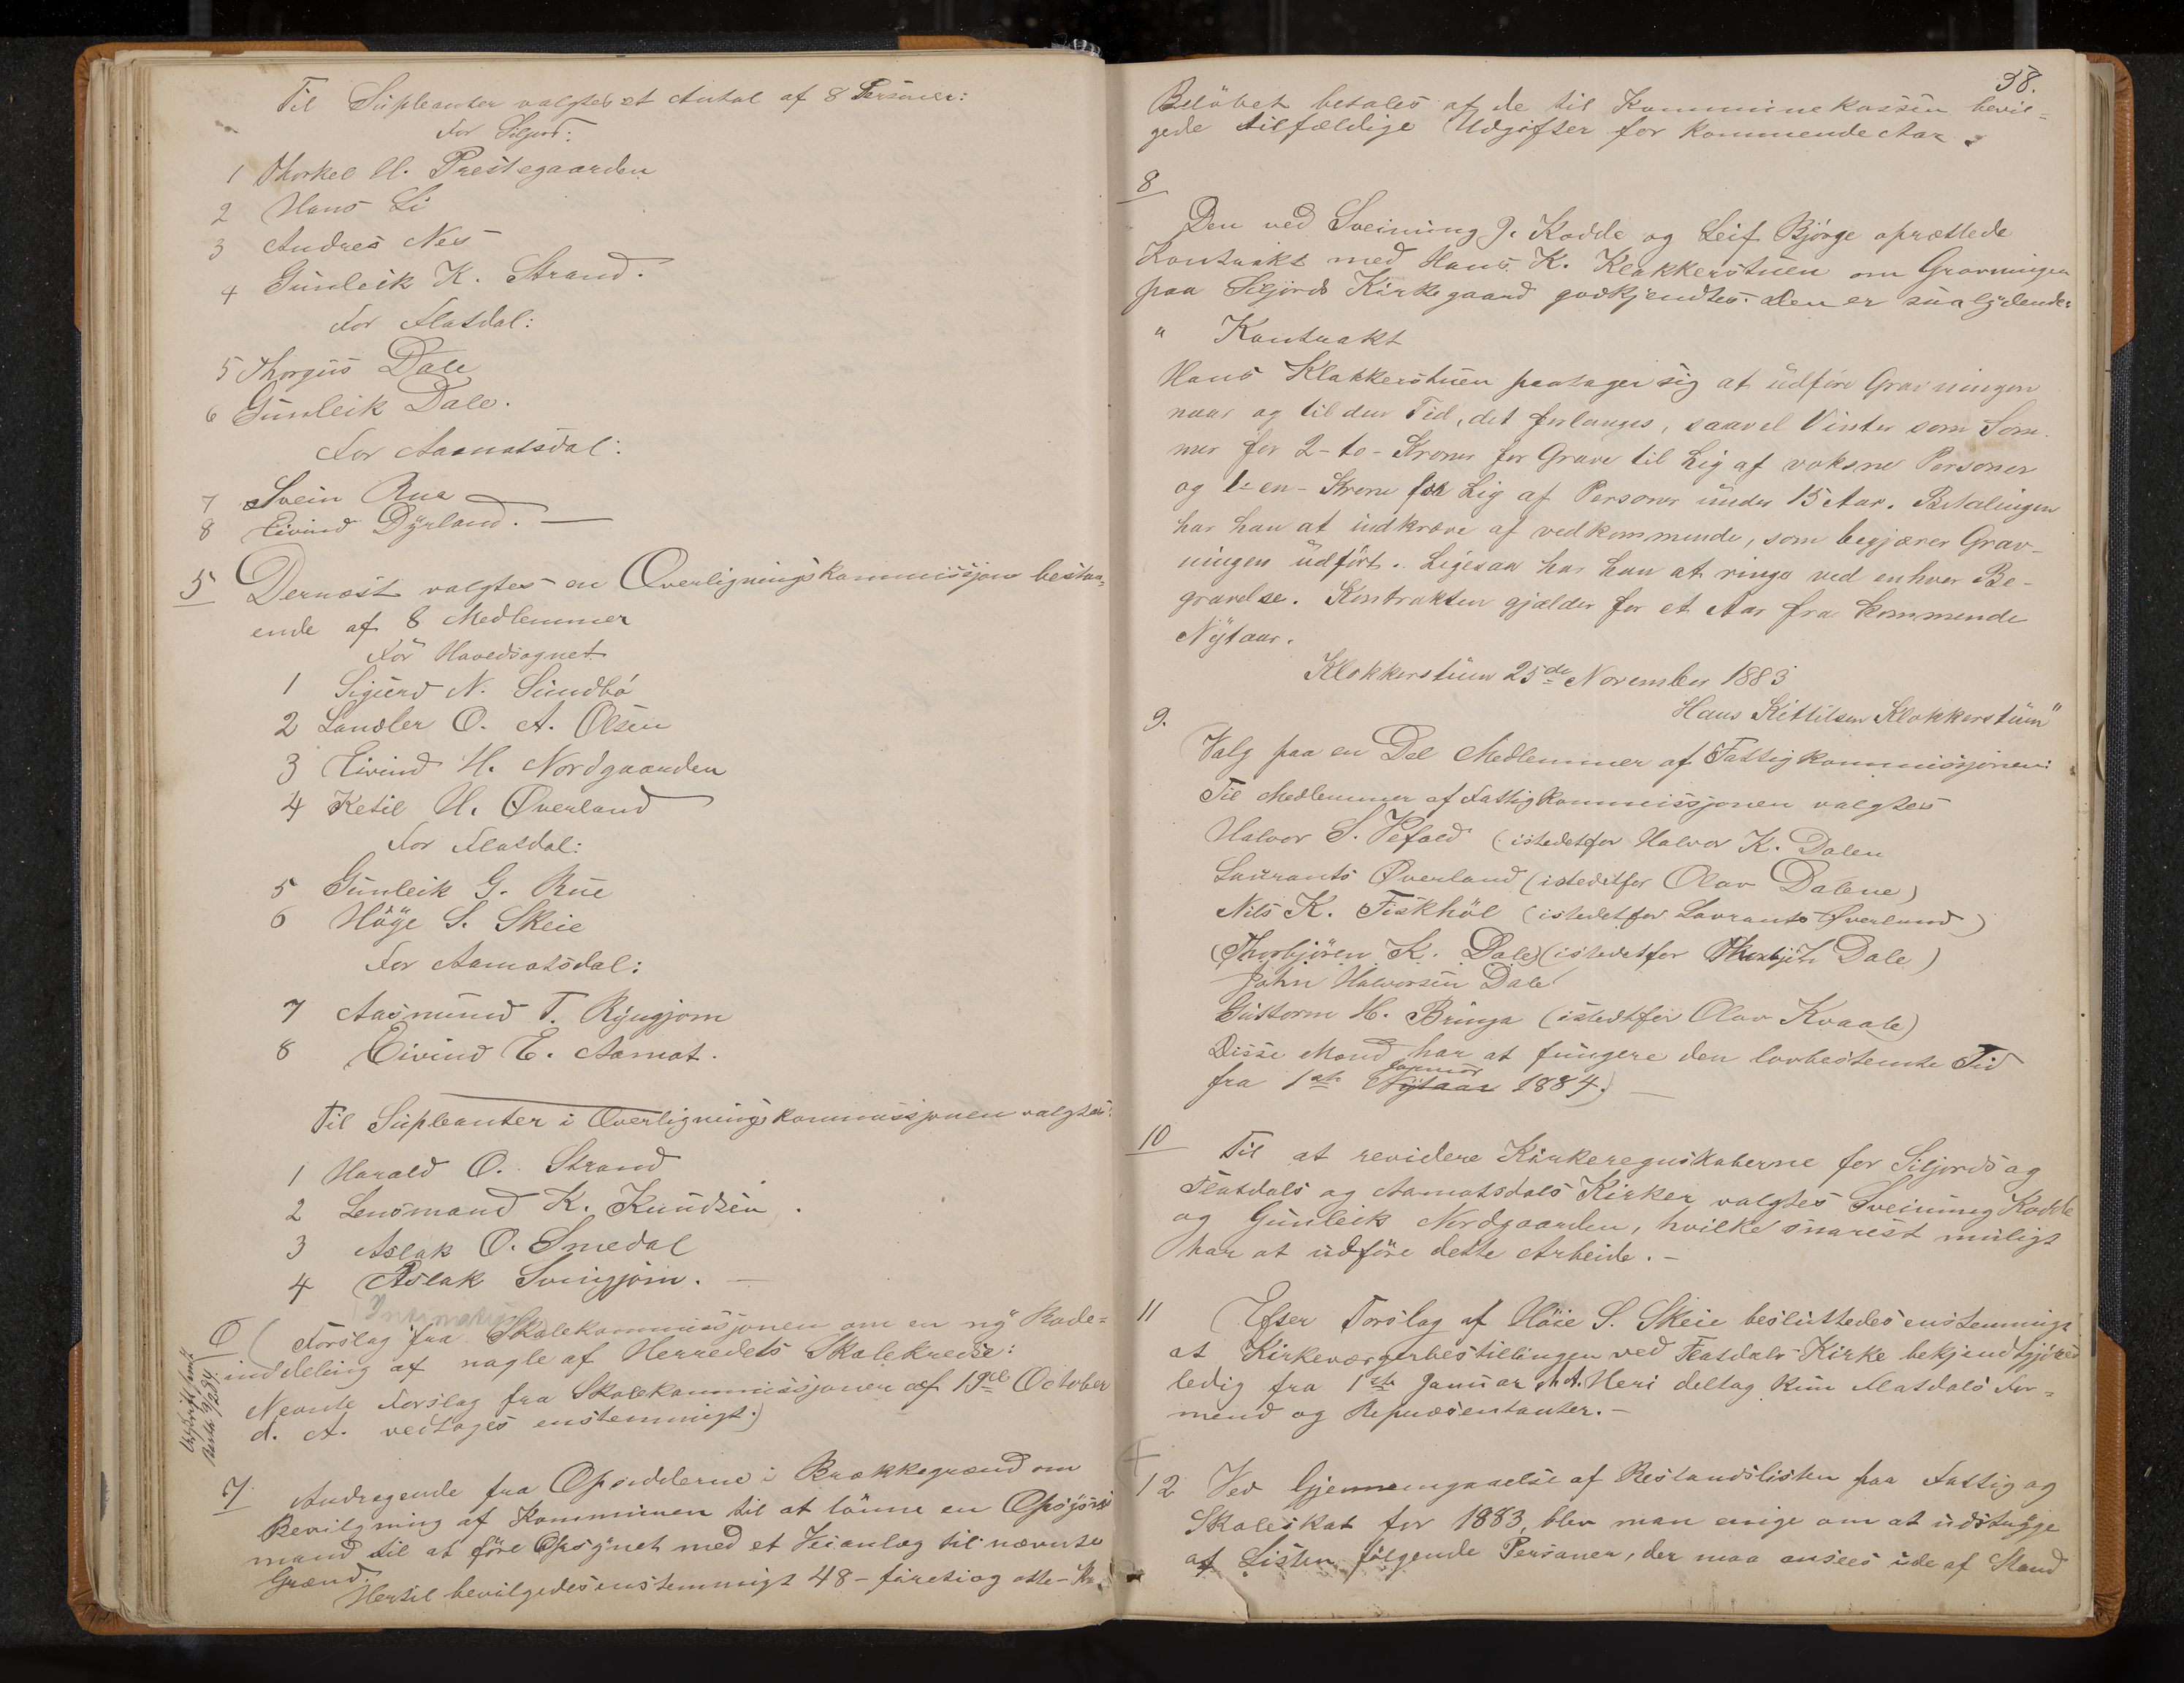 Til Supleanter valgtes et Antal af 8 Personer:
For Siljord:
1 Thorkel H. Prestegaarden
2 Hans Li
3 Andres Nes
4 Gunleik K. Strand.
For Flatdal:
5 Thorgus Dale
6 Gunleik Dale.
For Aamotsdal:
7 Svein Rue
8 Eivind Dyrland. —
5 Dernæst valgtes en Overligningskommissjon bestaa-
ende af 8 Medlemmer
For Hovedsognet
1 Sigurd N. Sundbö
2 Landler O. A. Olsen
3 Eivind H. Nordgaarden
4 Ketil H. Øverland
For Flatdal:
5 Gunleik G. Rue
6 Höye S. Skeie
For Aamotsdal:
7 Aasmund T. Ryngjom
8 Eivind E. Aamot.
Til Supleanter i Overligningskommissjonen valgtes:
1 Harald O. Strand
2 Lensmand K. Knudsen.
3 Aslak O. Smedal
4 Aslak Svingjom. —
6 (Forslag fra Skolekommissjonen om en ny Rode-
inddeling af nogle af Herredets Skolekredse:
Nevnte Forslag fra Skolekommissjonen af 19de October
d. A. vedtoges enstemmigt.)
Udskrift sendt
7 Andragende fra Opsidderne i Brækkegrænd om
Bevilgning af Kommunen til at lönne en Opsyns-
mand til at före Opsynet med et Veianlæg til nævnte
Grænd.
Hertil bevilgedes enstemmigt 48 - företi og otte - Kr.
38.
Belöbet betales af de til Kommunekassen bevil-
gede tilfældige Udgifter for kommende Aar.
8
Den ved Sveinung J. Kodde og Leif Björge oprettede
Kontrakt med Hans K. Klokkerstuen om Gravningen
paa Siljords Kirkegaard godkjendtes. Den er saalydende:
" Kontrakt
Hans Klokkerstuen paatager sig at udföre Gravningen
naar og til den Tid, det forlanges, saavel Vinter som Som-
mer for 2 - to - Kroner for Grave til Lig af voksne Personer
og 1 - en - Krone for Lig af Personer under 15 Aar. Betalingen
har han at indkræve af vedkommende, som begjærer Grav-
ningen udfört. Ligesaa har han at ringe ved enhver Be-
gravelse. Kontrakten gjælder for et Aar fra kommende
Nytaar.
Klokkerstuen 25de November 1883
Hans Kittilsen Klokkerstuen"
9.
Valg paa en Del Medlemmer af Fattigkommissjonen:
Til Medlemmer af Fattigkommissjonen valgtes
Halvor S. Vefald (istedetfor Halvor K. Dalen
Laurants Øverland (istedetfor Olav Dalene)
Nils K. Fiskhöl (istedetfor Lavrants Øverland)
(Thorbjören K. Dale) (istedetfor Thorbjörn Dale)
John Halvorsen Dale
Guttorm H. Bringa (istedtfor Olav Kvaale)
Disse Mænd har at fungere den lovbestemte Tid
fra 1ste Nytaar Januar 1884.) —
10
Til at revidere Kirkeregnskaberne for Siljords og
Flatdals og Aamotsdals Kirker valgtes Sveinung Kodde
og Gunleik Nordgaarden, hvilke snarest muligt
har at udföre dette Arbeide. —
11 Efter Forslag af Höie S. Skeie besluttedes enstemmigt
at Kirkeværgerbestillingen ved Flatdals Kirke bekjendtgjöres
ledig fra 1ste Januar n. A. Heri deltog kun Flatdals For-
mend og Repræsentanter. —
12 Ved Gjennemgaaelse af Restandslisten paa Fattig og
Skoleskat for 1883, blev man enige om at udstryge
af Listen fölgende Personer, der maa ansees ude af Stand